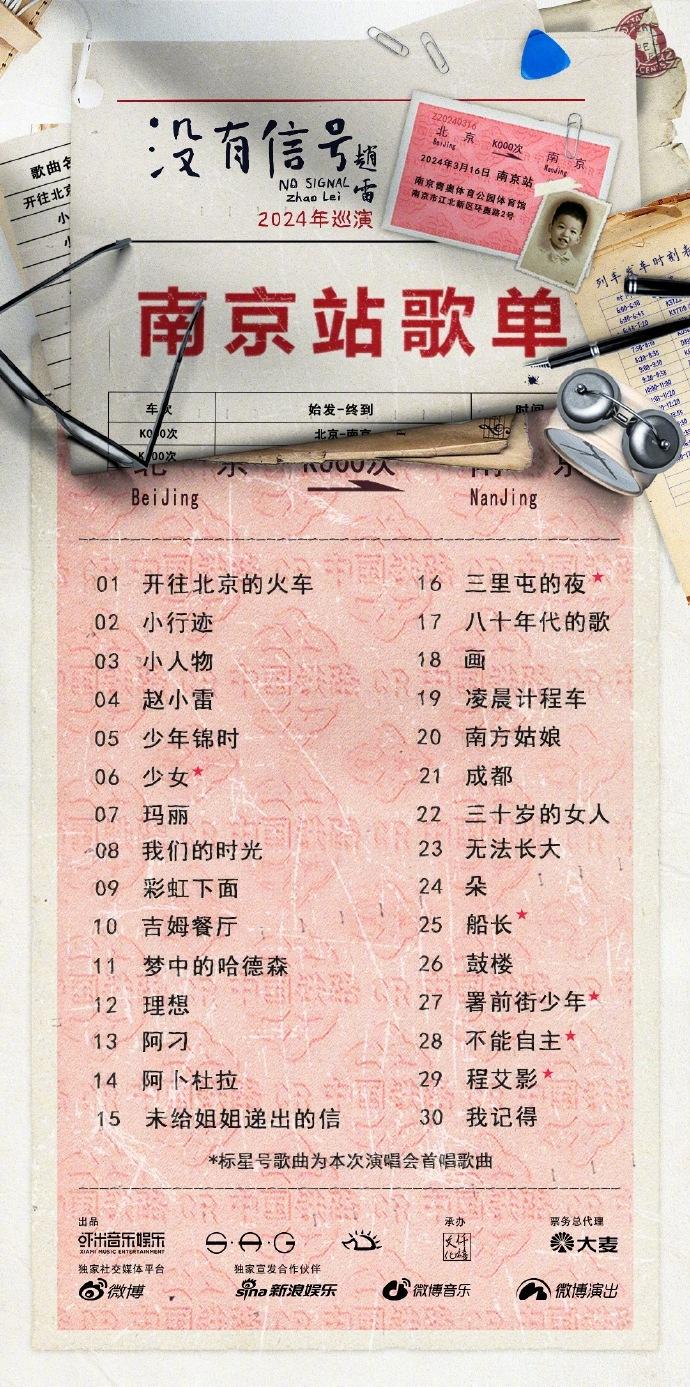 没有信号
趙雷
NO SIGNAL
Zhao Lei
2024年巡演
Z20240316
北京 K000次 南京
BeiJing NanJing
2024年3月16日 南京站
南京青奥体育公园体育馆
南京市江北新区环奥路2号
歌曲名
开往北京
小
列车发车时刻表
南京站歌单
车次 始发-终到 时间
K000次 北京-南京
K000次
北京 K000次 南京
BeiJing NanJing
01 开往北京的火车
02 小行迹
03 小人物
04 赵小雷
05 少年锦时
06 少女★
07 玛丽
08 我们的时光
09 彩虹下面
10 吉姆餐厅
11 梦中的哈德森
12 理想
13 阿刁
14 阿卜杜拉
15 未给姐姐递出的信
16 三里屯的夜★
17 八十年代的歌
18 画
19 凌晨计程车
20 南方姑娘
21 成都
22 三十岁的女人
23 无法长大
24 朵
25 船长★
26 鼓楼
27 署前街少年★
28 不能自主★
29 程艾影★
30 我记得
*标星号歌曲为本次演唱会首唱歌曲
出品 承办 票务总代理
虾米音乐娱乐
XIAMI MUSIC ENTERTAINMENT
S·A·G
大麦
独家社交媒体平台 独家宣发合作伙伴
微博 sina新浪娱乐 微博音乐 微博演出